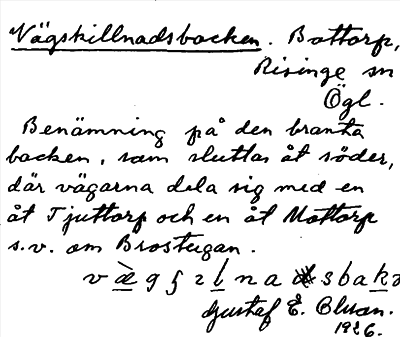 Vägskillnadsbacken. Bottorp,
Risinge sn
Ögl.
Benämning på den branta
backen, som sluttar åt söder,
där vägarna dela sig med en
åt Tjuttorp och en åt Mottorp
s.v. om Brostugan.
Gustaf E.
1926.